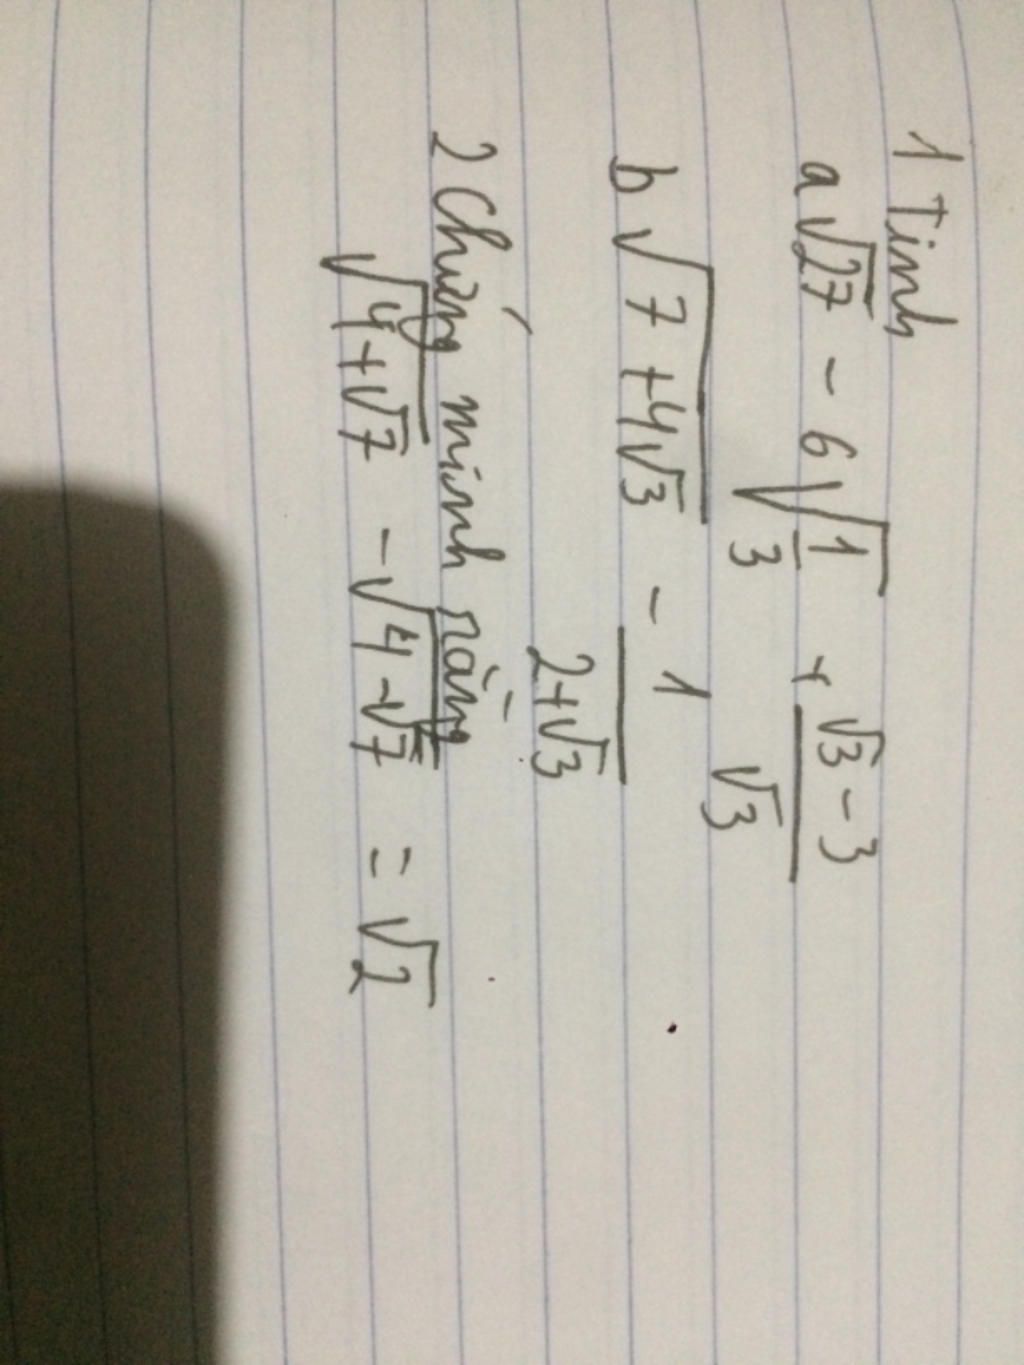 1 Tinh
a √27 - 6√(1/3) + (√3 - 3)/√3
b √(7 + 4√3) - 1/(2+√3)
2 Chứng minh rằng
√(4+√7) - √(4-√7) = √2